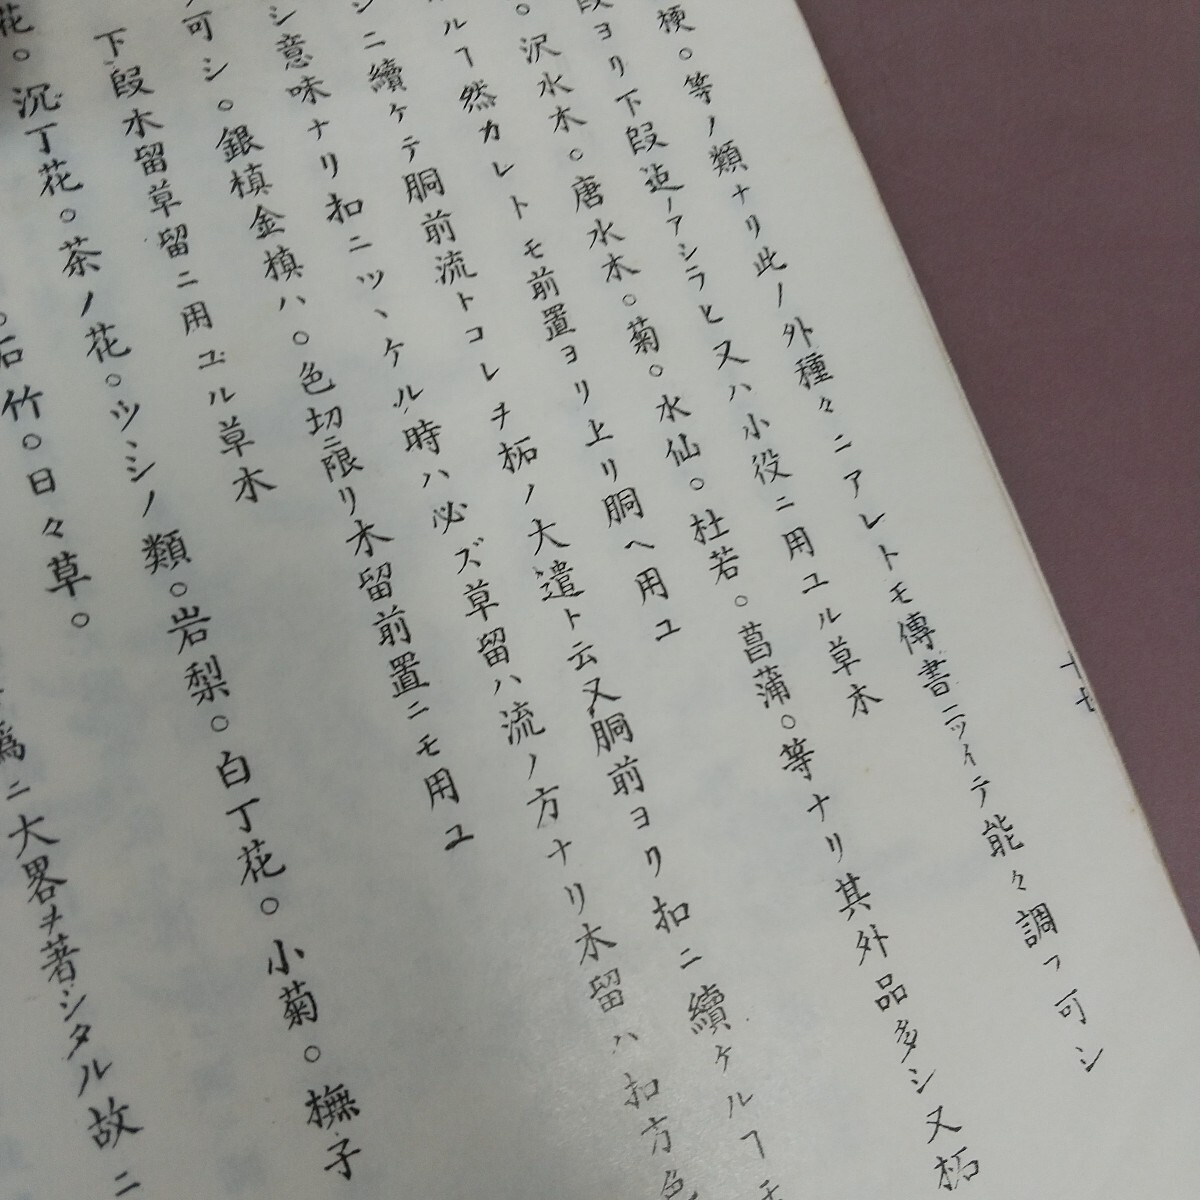 梗。等ノ類ナリ此ノ外種々ニアレトモ傳書ニツイテ能々調フ可シ
段ヨリ下段迠ノアシラヒ又ハ小役ニ用ユル草木
。沢水木。唐水木。菊。水仙。杜若。菖蒲。等ナリ其外品多シ又柘
ルヿ然カレトモ前置ヨリ上リ胴ヘ用ユ
シニ續ケテ胴前流トコレヲ柘ノ大遣ト云又胴前ヨリ扣ニ續ケルヿモ
シ意味ナリ扣ニツヽケル時ハ必ズ草留ハ流ノ方ナリ木留ハ扣方色
可シ。銀槙金槙ハ。色切ニ限リ木留前置ニモ用ユ
下段木留草留ニ用ユル草木
花。沉丁花。茶ノ花。ツヽシノ類。岩梨。白丁花。小菊。撫子
。石竹。日々草。
爲ニ大畧ヲ著シタル故ニ
十七